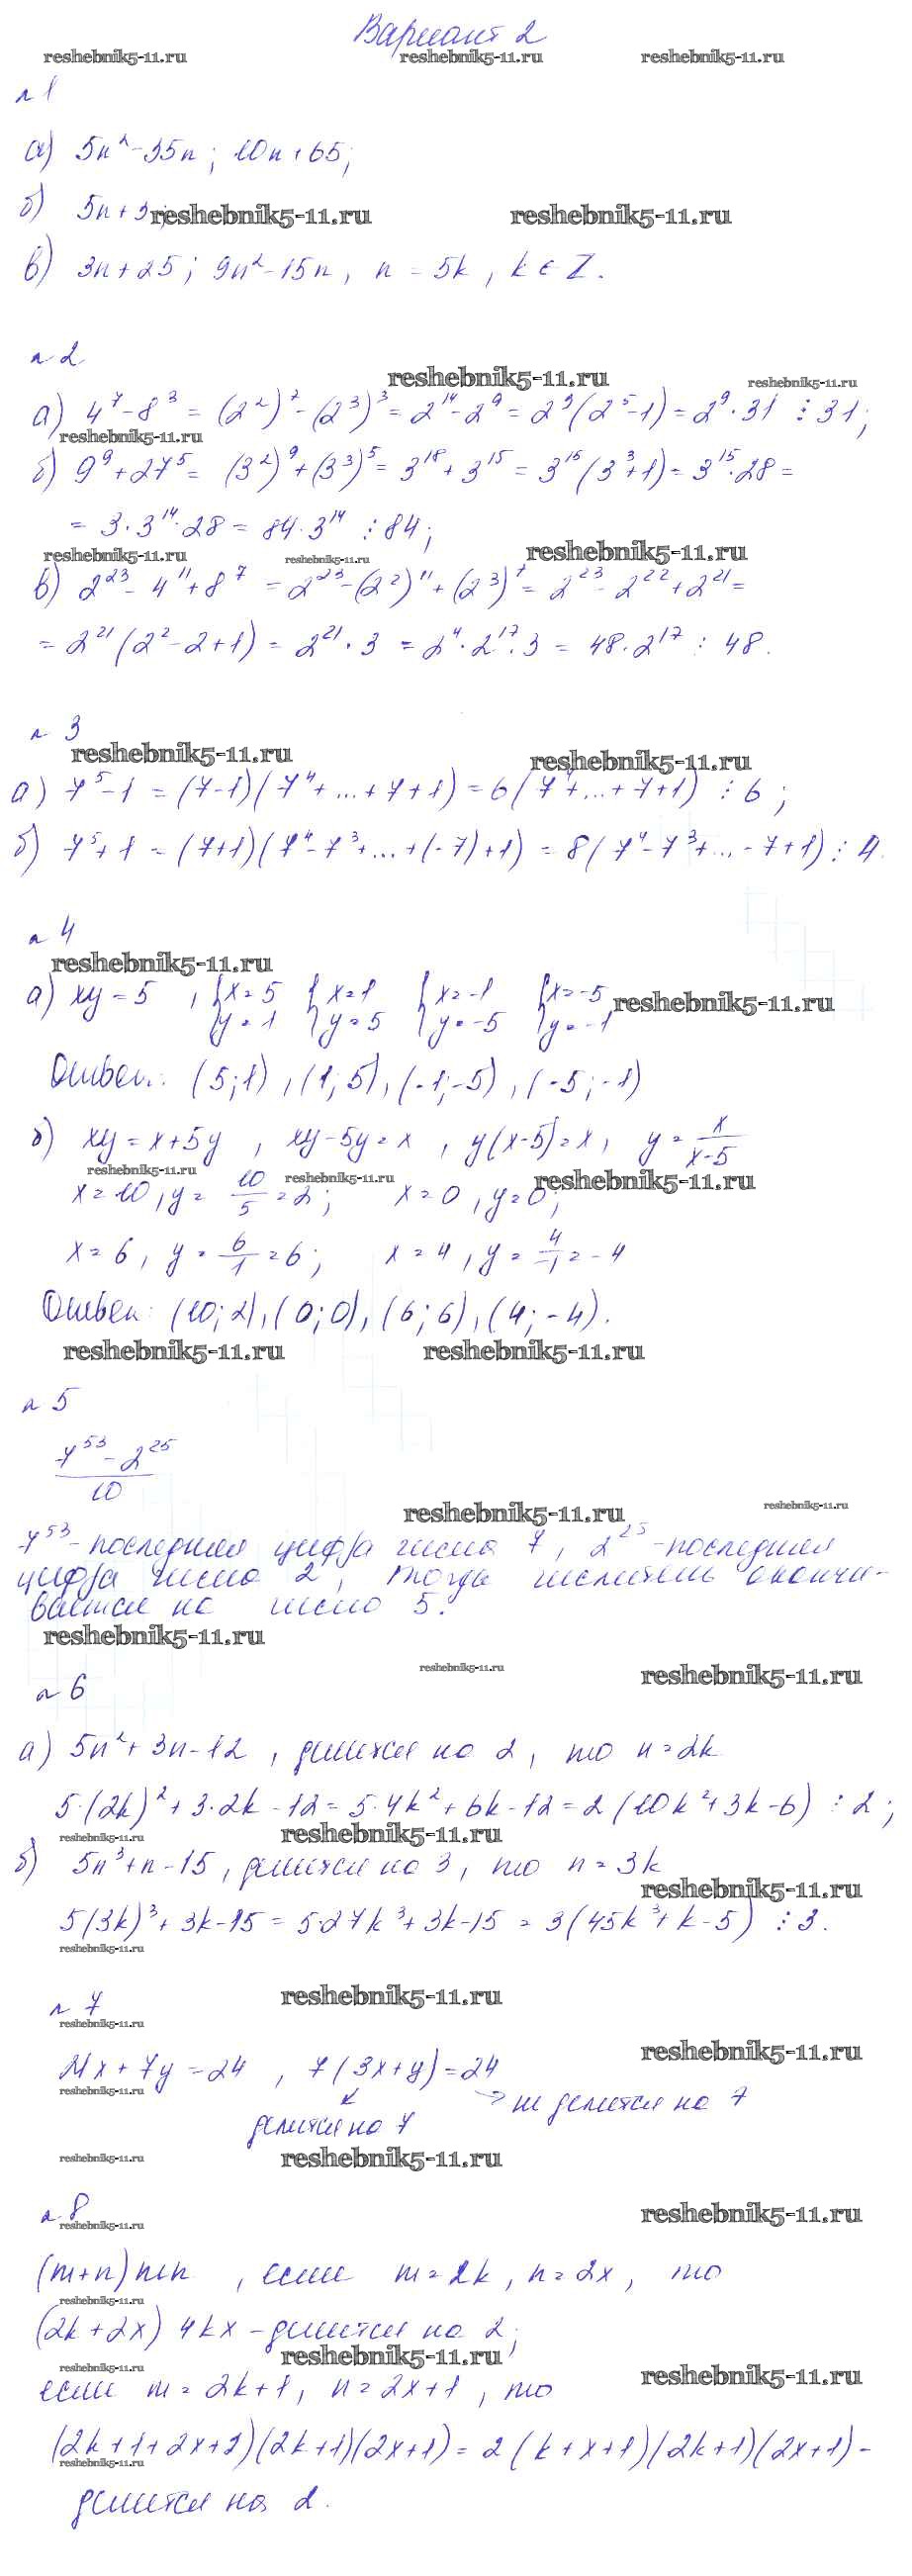 Вариант 2
reshebnik5-11.ru reshebnik5-11.ru reshebnik5-11.ru
№ 1
а) 5n² - 35n ; 10n + 65;
б) 5n + 3;
reshebnik5-11.ru reshebnik5-11.ru
в) 3n + 25 ; 9n² - 15n , n = 5k , k ∈ Z .
№ 2
reshebnik5-11.ru reshebnik5-11.ru
а) 4⁷ - 8³ = (2²)⁷ - (2³)³ = 2¹⁴ - 2⁹ = 2⁹ (2⁵ - 1) = 2⁹ · 31 ⋮ 31;
reshebnik5-11.ru
б) 9⁹ + 27⁵ = (3²)⁹ + (3³)⁵ = 3¹⁸ + 3¹⁵ = 3¹⁵ (3³ + 1) = 3¹⁵ · 28 =
= 3 · 3¹⁴ · 28 = 84 · 3¹⁴ ⋮ 84;
reshebnik5-11.ru reshebnik5-11.ru reshebnik5-11.ru
в) 2²³ - 4¹¹ + 8⁷ = 2²³ - (2²)¹¹ + (2³)⁷ = 2²³ - 2²² + 2²¹ =
= 2²¹ (2² - 2 + 1) = 2²¹ · 3 = 2⁴ · 2¹⁷ · 3 = 48 · 2¹⁷ ⋮ 48.
№ 3
reshebnik5-11.ru reshebnik5-11.ru
а) 7⁵ - 1 = (7 - 1) (7⁴ + ... + 7 + 1) = 6 (7⁴ + ... + 7 + 1) ⋮ 6 ;
б) 7⁵ + 1 = (7 + 1) (7⁴ - 7³ + ... + (-7) + 1) = 8 (7⁴ - 7³ + ... - 7 + 1) ⋮ 4.
№ 4
reshebnik5-11.ru
а) xy = 5 , { x = 5 { x = 1 { x = -1 { x = -5 reshebnik5-11.ru
y = 1 y = 5 y = -5 y = -1
Ответ: (5; 1) , (1; 5) , (-1; -5) , (-5; -1)
б) xy = x + 5y , xy - 5y = x , y (x - 5) = x , y = x/(x - 5)
reshebnik5-11.ru reshebnik5-11.ru reshebnik5-11.ru
x = 10 , y = 10/5 = 2 ; x = 0 , y = 0 ;
x = 6 , y = 6/1 = 6 ; x = 4 , y = 4/-1 = -4
Ответ: (10; 2), (0; 0), (6; 6), (4; -4).
reshebnik5-11.ru reshebnik5-11.ru
№ 5
(7⁵³ - 2²⁵)/10
reshebnik5-11.ru reshebnik5-11.ru
7⁵³ - последняя цифра числа 7 , 2²⁵ - последняя
цифра числа 2 , тогда числитель оканчи-
вается на число 5.
reshebnik5-11.ru
reshebnik5-11.ru reshebnik5-11.ru
№ 6
а) 5n² + 3n - 12 , делится на 2 , то n = 2k
5 · (2k)² + 3 · 2k - 12 = 5 · 4k² + 6k - 12 = 2 (10k² + 3k - 6) ⋮ 2 ;
reshebnik5-11.ru reshebnik5-11.ru
б) 5n³ + n - 15 , делится на 3 , то n = 3k
reshebnik5-11.ru
5 (3k)³ + 3k - 15 = 5 · 27k³ + 3k - 15 = 3 (45k³ + k - 5) ⋮ 3.
reshebnik5-11.ru
reshebnik5-11.ru
№ 7
reshebnik5-11.ru
reshebnik5-11.ru
21x + 7y = 24 , 7 (3x + y) = 24
reshebnik5-11.ru
↙ → не делится на 7
делится на 7
reshebnik5-11.ru reshebnik5-11.ru
№ 8
reshebnik5-11.ru
reshebnik5-11.ru
(m + n) mn , если m = 2k , n = 2x , то
reshebnik5-11.ru
(2k + 2x) 4kx - делится на 2 ;
reshebnik5-11.ru
reshebnik5-11.ru reshebnik5-11.ru
если m = 2k + 1 , n = 2x + 1 , то
(2k + 1 + 2x + 1) (2k + 1) (2x + 1) = 2 (k + x + 1) (2k + 1) (2x + 1) -
reshebnik5-11.ru
делится на 2.